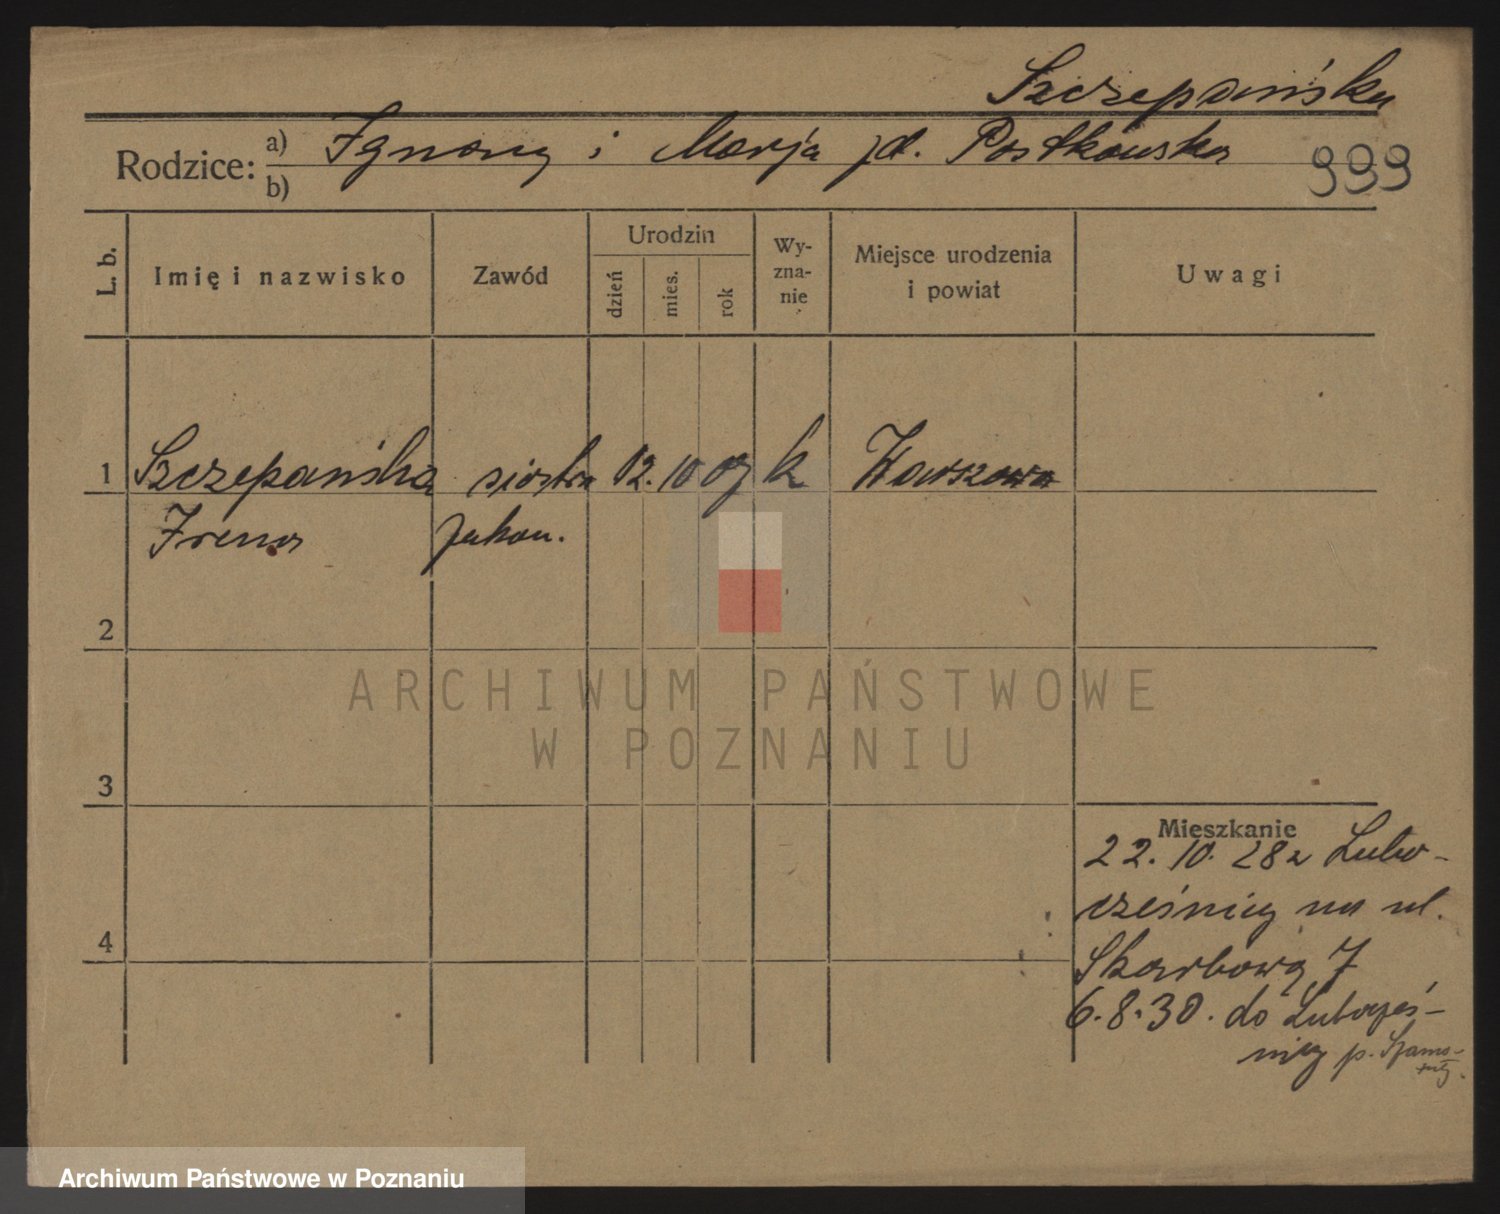 Szczepańska
Rodzice: a) Ignacy i Marja zd. Postkowska
b)
999
L. b.
Imię i nazwisko
Zawód
Urodzin
dzień
mies.
rok
Wy-
zna-
nie
Miejsce urodzenia
i powiat
Uwagi
1 Szczepańska siostra 12. 10 07 k Warszawa
Irena zakon.
2
3
4
ARCHIWUM PAŃSTWOWE
W POZNANIU
Mieszkanie
22. 10. 28 z Lubo-
cześnicy na ul.
Skarbową 7
6.8.30. do Lubocześ-
nicy p. Szamo-
tuły.
Archiwum Państwowe w Poznaniu